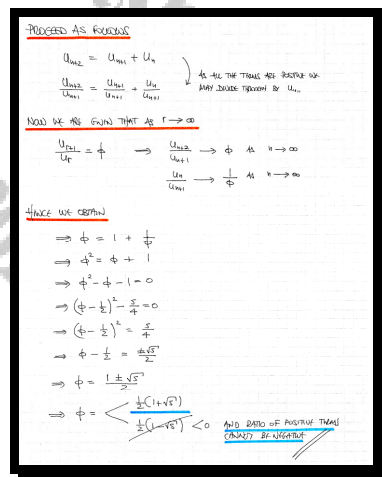 PROCEED AS FOLLOWS
U_{n+2} = U_{n+1} + U_n
\frac{U_{n+2}}{U_{n+1}} = \frac{U_{n+1}}{U_{n+1}} + \frac{U_n}{U_{n+1}}
AS ALL THE TERMS ARE POSITIVE WE
MAY DIVIDE THROUGH BY U_{n+1}
NOW WE ARE GIVEN THAT AS r → ∞
\frac{U_{r+1}}{U_r} = ϕ ⟹ \frac{U_{n+2}}{U_{n+1}} → ϕ AS n → ∞
\frac{U_n}{U_{n+1}} → \frac{1}{ϕ} AS n → ∞
HENCE WE OBTAIN
⟹ ϕ = 1 + \frac{1}{ϕ}
⟹ ϕ² = ϕ + 1
⟹ ϕ² - ϕ - 1 = 0
⟹ (ϕ - ½)² - \frac{5}{4} = 0
⟹ (ϕ - ½)² = \frac{5}{4}
⟹ ϕ - ½ = \frac{±√5}{2}
⟹ ϕ = \frac{1 ± √5}{2}
⟹ ϕ = < ½(1+√5)
½(1-√5) < 0 AND RATIO OF POSITIVE TERMS
CANNOT BE NEGATIVE